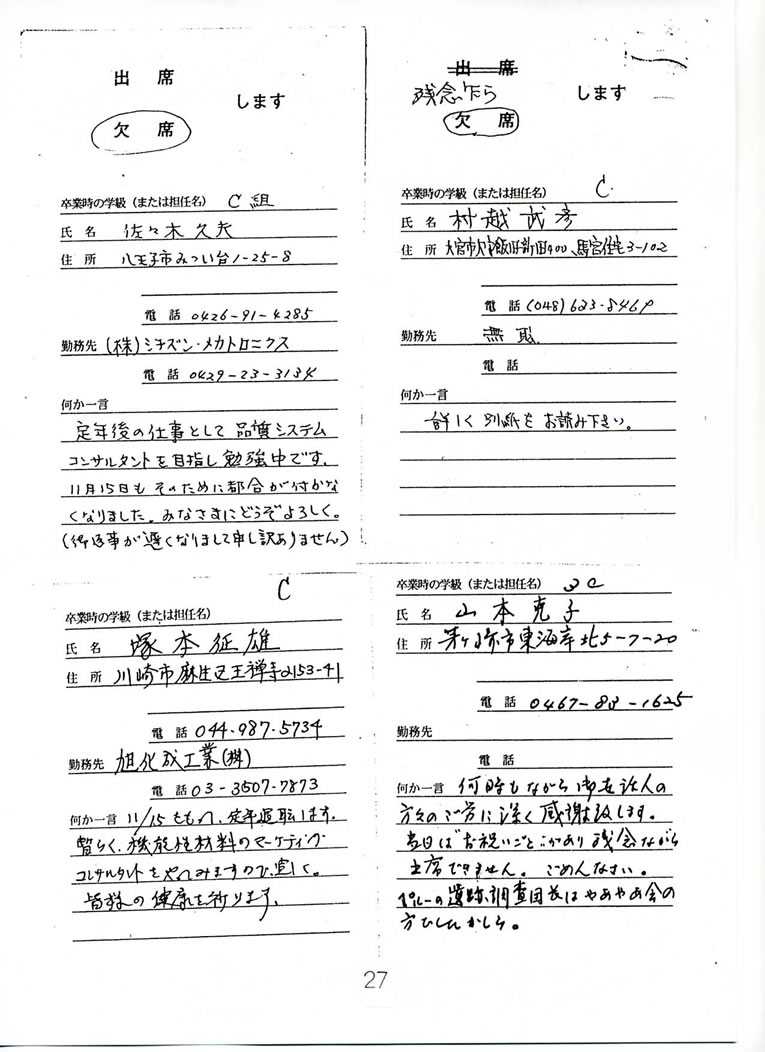 出席
します
欠席
卒業時の学級（または担任名） C組
氏名 佐々木久夫
住所 八王子市みつい台1-25-8
電話 0426-91-4285
勤務先 (株)シチズン・メカトロニクス
電話 0429-23-3134
何か一言
定年後の仕事として品質システム
コンサルタントを目指し勉強中です。
11月15日もそのために都合が付かな
くなりました。みなさまにどうぞよろしく。
(御返事が遅くなりまして申し訳ありません)
出席
残念乍ら
します
欠席
卒業時の学級（または担任名） C.
氏名 村越武彦
住所 大宮市大字飯田新田400、馬宮住宅3-102
電話 (048)623-8469
勤務先 無職
電話
何か一言
詳しく別紙をお読み下さい。
C
卒業時の学級（または担任名）
氏名 塚本征雄
住所 川崎市麻生区王禅寺2153-41
電話 044-987-5734
勤務先 旭化成工業(株)
電話 03-3507-7873
何か一言 11/15をもって、定年退職します。
暫らく、機能性材料のマーケティング
コンサルタントをやってみますので、宜しく。
皆様の健康を祈ります。
卒業時の学級（または担任名） 3C
氏名 山本克子
住所 茅ヶ崎市東海岸北5-7-20
電話 0467-83-1625
勤務先
電話
何か一言 何時もながら御世話人の
方々のご労に深く感謝致します。
当日はお祝いごとがあり残念ながら
出席できません。ごめんなさい。
ペルーの遺跡調査団長はやあやあ会の
方でしたかしら。
27